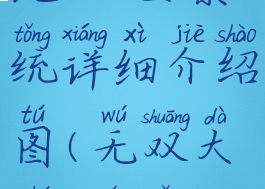 tǒng xiáng xì jiè shào
统详细介绍
tú wú shuāng dà
图(无双大